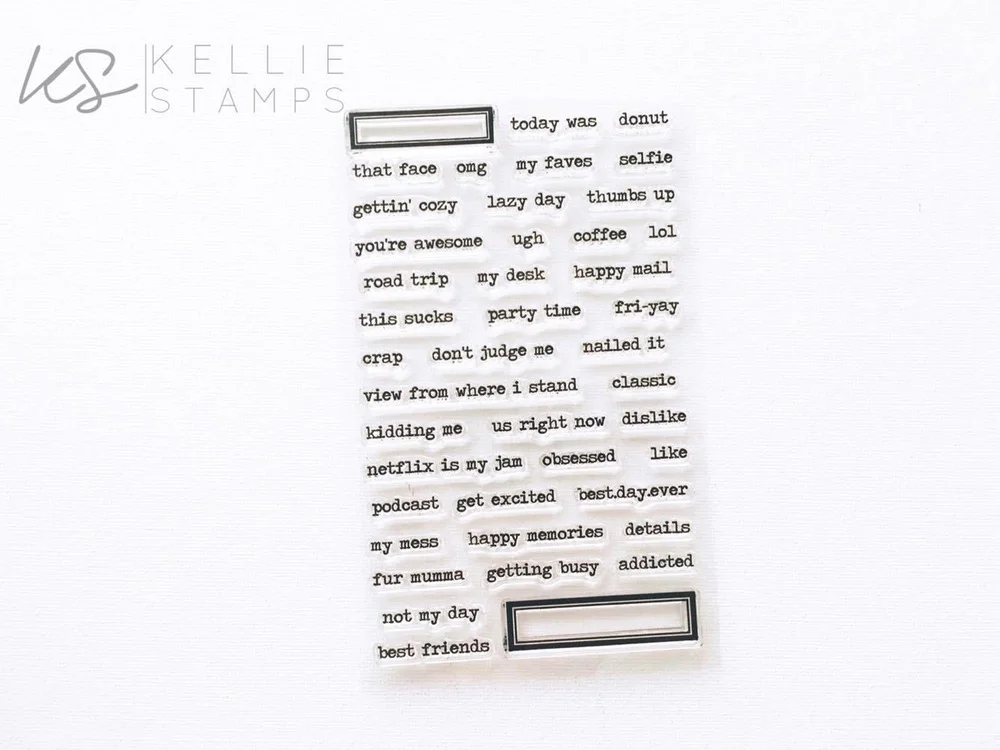 KS KELLIE
STAMPS
today was donut
that face omg my faves selfie
gettin' cozy lazy day thumbs up
you're awesome ugh coffee lol
road trip my desk happy mail
this sucks party time fri-yay
crap don't judge me nailed it
view from where i stand classic
kidding me us right now dislike
netflix is my jam obsessed like
podcast get excited best.day.ever
my mess happy memories details
fur mumma getting busy addicted
not my day
best friends